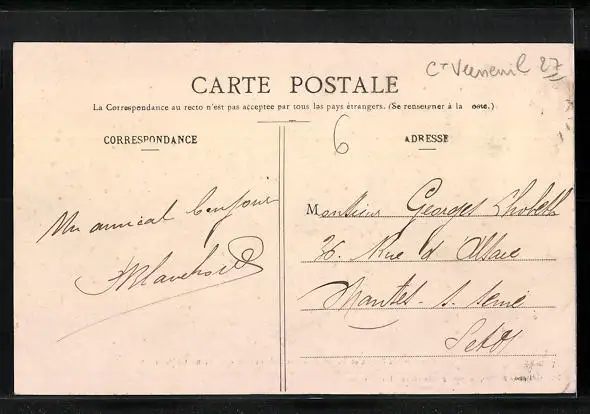 Ct Verneuil 27
CARTE POSTALE
La Correspondance au recto n'est pas acceptee par tous las pays étrangers. (Se renseigner à la oste.)
6
CORRESPONDANCE
Un amical bonjour
ADRESSE
Monsieur Georges
36. Rue d'Alsace
Mantes-s-Seine
S et O